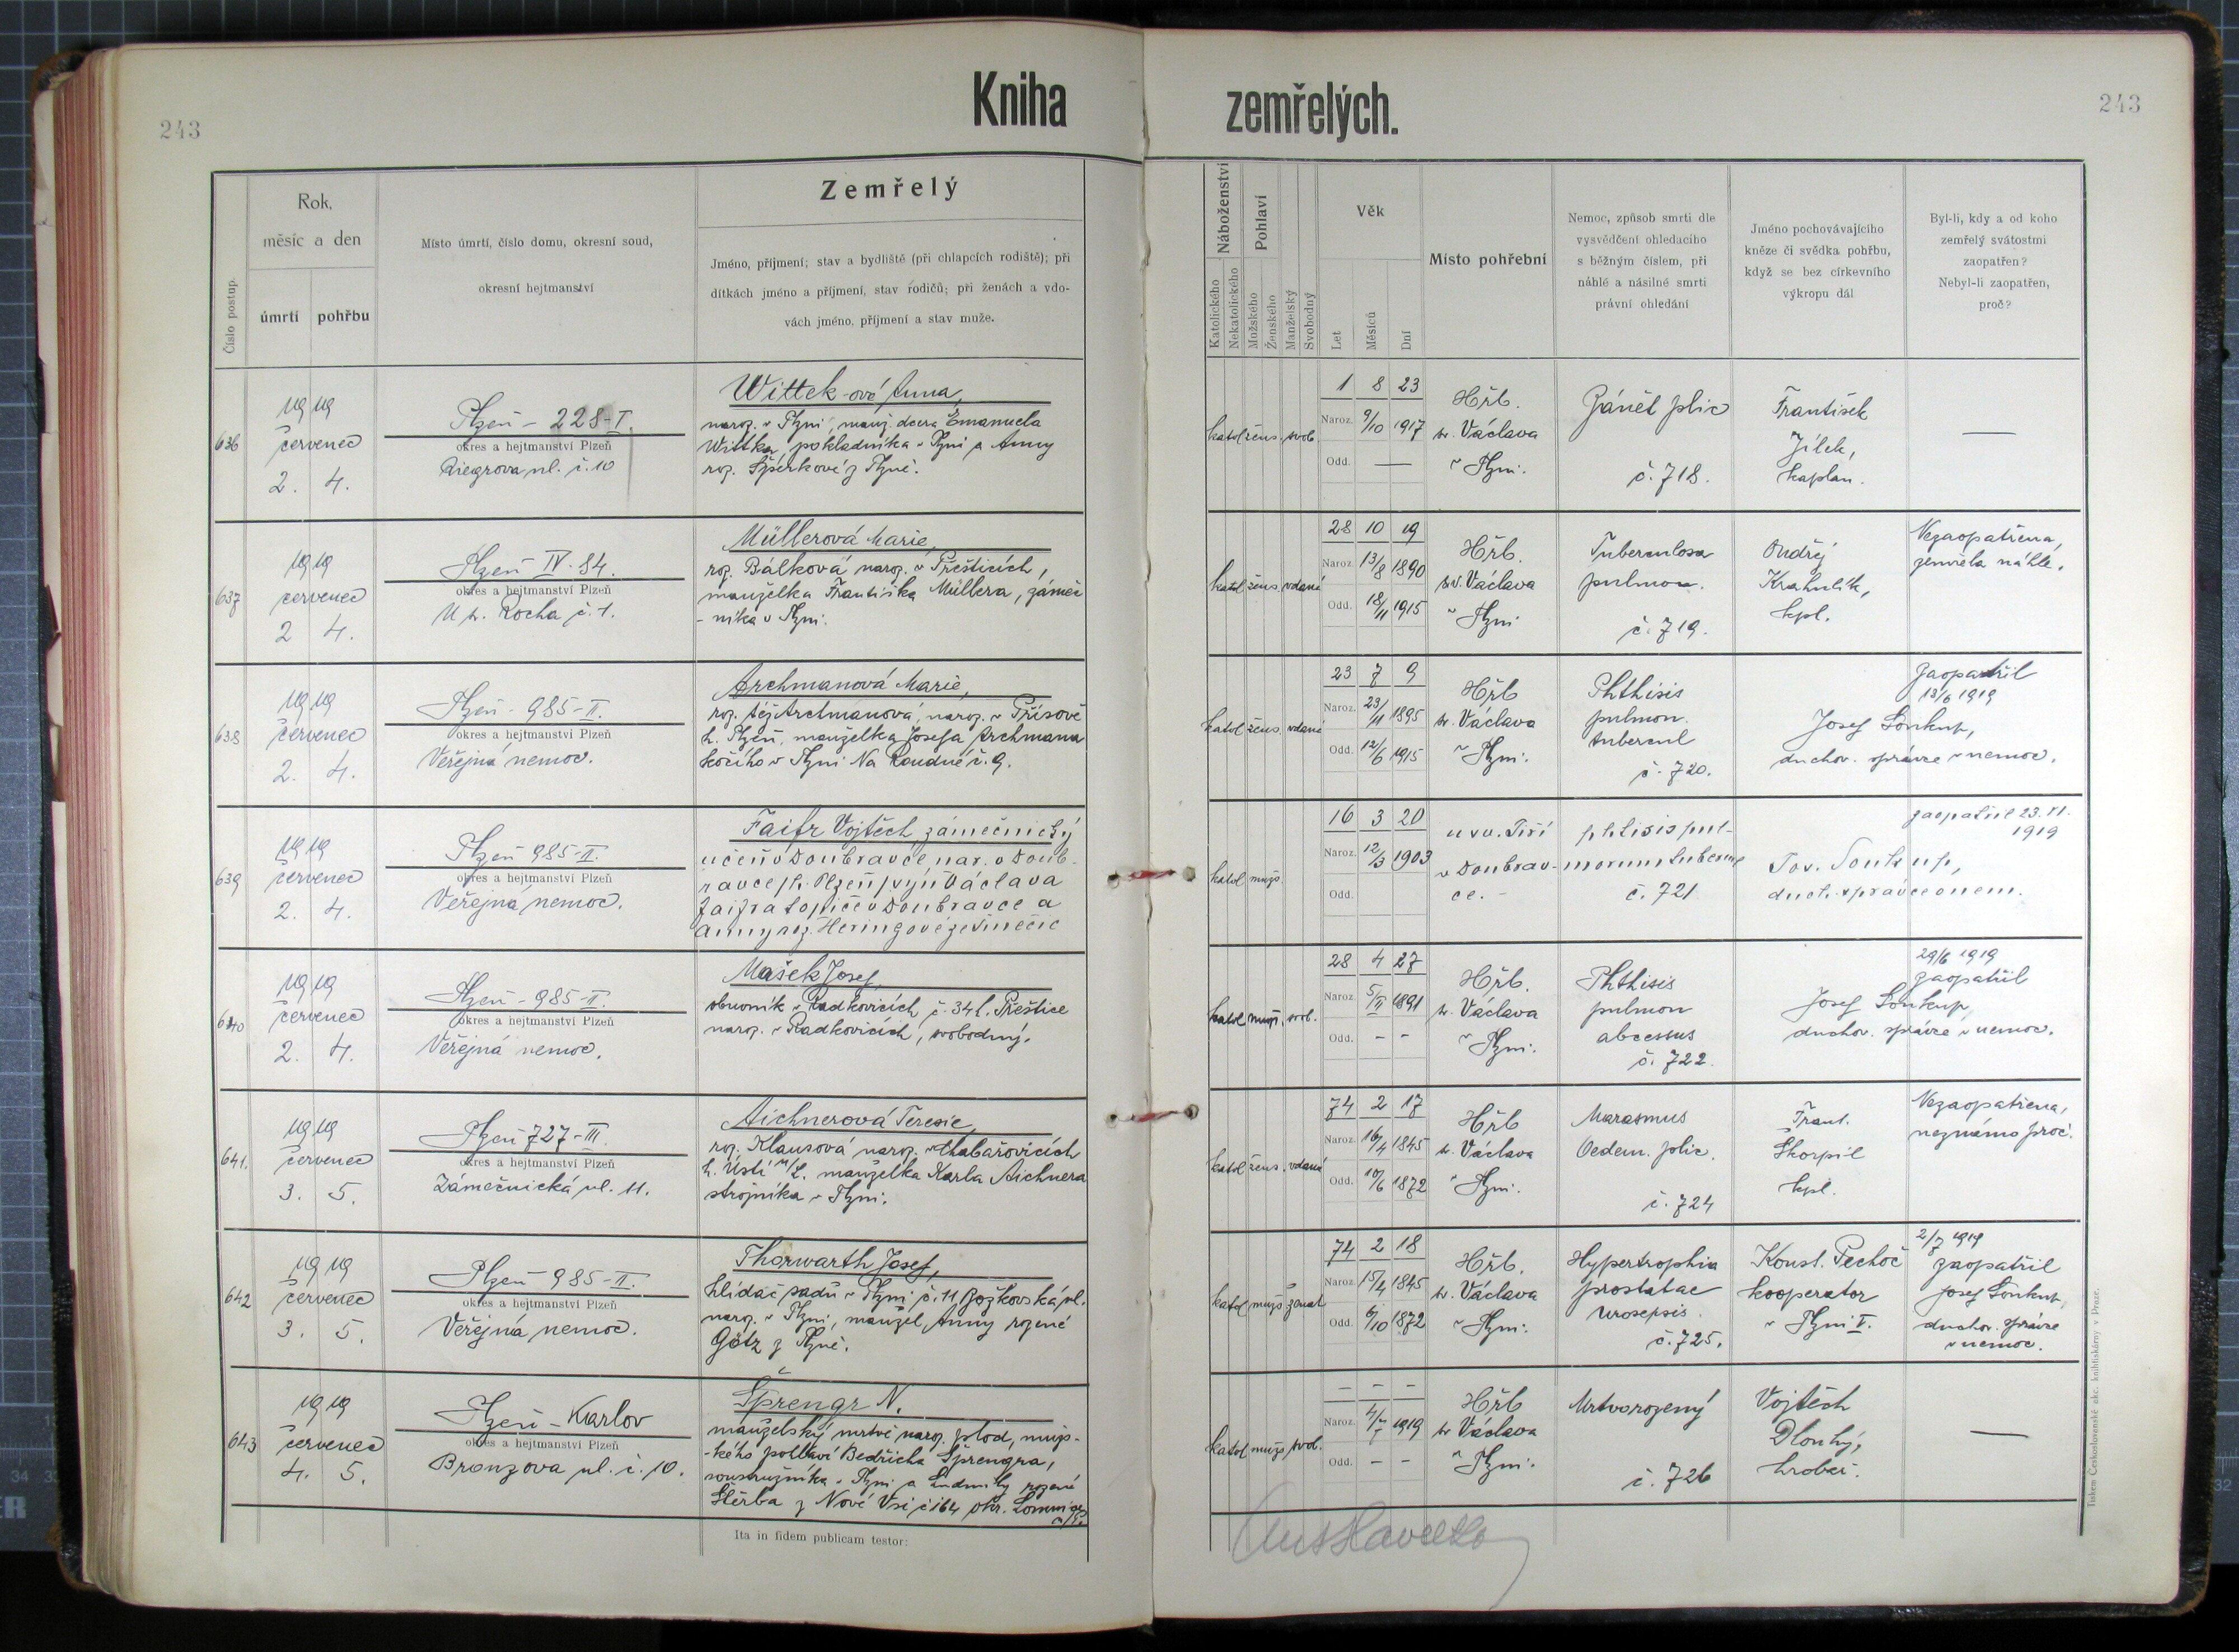 243
Kniha
zemřelých.
243
Číslo postup.
Rok,
měsíc a den
úmrtí
pohřbu
Místo úmrtí, číslo domu, okresní soud,
okresní hejtmanství
Zemřelý
Jméno, příjmení; stav a bydliště (při chlapcích rodiště); při
dítkách jméno a příjmení, stav rodičů; při ženách a vdo-
vách jméno, příjmení a stav muže.
Náboženství
Katolického
Nekatolického
Pohlaví
Mužského
Ženského
Manželský
Svobodný
Věk
Let
Měsíců
Dní
Místo pohřební
Nemoc, způsob smrti dle
vysvědčení ohledacího
s běžným číslem, při
náhlé a násilné smrti
právní ohledání
Jméno pochovávajícího
kněze či svědka pohřbu,
když se bez církevního
výkropu dál
Byl-li, kdy a od koho
zemřelý svátostmi
zaopatřen?
Nebyl-li zaopatřen,
proč?
636
1919
červenec
2. 4.
Plzeň - 228-I.
okres a hejtmanství Plzeň
Riegrova ul. č. 10
Wittek-ová Anna,
naroz. v Plzni, manž. dcera Emanuela
Wittka, pokladníka v Plzni a Anny
roz. Šperkové z Plzně.
katol žens. svob.
1 8 23
Naroz. 9/10 1917
Odd. —
Hřb.
sv. Václava
v Plzni.
Zánět plic
č. 718.
František
Jílek,
kaplan.
—
637
1919
červenec
2 4.
Plzeň IV. 84.
okres a hejtmanství Plzeň
U sv. Rocha č. 1.
Müllerová Marie,
roz. Bálková naroz. v Přešticích,
manželka Františka Müllera, zámeč
- níka v Plzni.
katol žens. vdaná
28 10 19
Naroz. 13/8 1890
Odd. 18/11 1915
Hřb.
sv. Václava
v Plzni
Tuberculosa
pulmon.
č. 719.
Ondřej
Krahulík,
kpl.
Nezaopatřena,
zemřela náhle.
638
1919
červenec
2. 4.
Plzeň - 985-II.
okres a hejtmanství Plzeň
Veřejná nemoc.
Archmanová Marie,
roz. též Archmanová, naroz. v Příšově
h. Plzeň, manželka Josefa Archmana
kočího v Plzni Na Roudné č. 9.
katol žens. vdaná
23 7 9
Naroz. 23/11 1895
Odd. 12/6 1915
Hřb
sv. Václava
v Plzni.
Phthisis
pulmon.
tubercul
č. 720.
Zaopatřil
13/6 1919
Josef Soukup,
duchov. správce v nemoc.
639
1919
červenec
2. 4.
Plzeň 985-II.
okres a hejtmanství Plzeň
Veřejná nemoc.
Faifr Vojtěch, zámečnický
učeň v Doubravce nar. v Doub-
ravce, h. Plzeň, syn Václava
Faifra topiče v Doubravce a
Anny roz. Heringové ze
katol mužs.
16 3 20
Naroz. 12/3 1903
Odd.
u sv. Jiří
v Doubrav-
ce.
phtisis pul-
monum tubercul
č. 721
zaopatřil 23. VI.
1919
Jos. Soukup,
duch. správce v nem.
640
1919
červenec
2. 4.
Plzeň - 985-II.
okres a hejtmanství Plzeň
Veřejná nemoc.
Mašek Josef,
obuvník v Radkovicích č. 34 h. Přeštice
naroz. v Radkovicích, svobodný.
katol mužs. svob.
28 4 27
Naroz. 5/II 1891
Odd. - -
Hřb.
sv. Václava
v Plzni.
Phthisis
pulmon
abcessus
č. 722.
29/6 1919
zaopatřil
Josef Soukup,
duchov. správce v nemoc.
641.
1919
červenec
3. 5.
Plzeň 727-III.
okres a hejtmanství Plzeň
Zámečnická ul. 11.
Aichnerová Terezie,
roz. Klausová naroz. v Chabařovicích
h. Ústí n/L. manželka Karla Aichnera
strojníka v Plzni.
katol žens. vdaná
74 2 17
Naroz. 16/4 1845
Odd. 10/6 1872
Hřb
sv. Václava
v Plzni.
Marasmus
Oedem. plic.
č. 724
Frant.
Škorpil
kpl.
Nezaopatřena,
neznámo proč.
642
1919
červenec
3. 5.
Plzeň 985-II.
okres a hejtmanství Plzeň
Veřejná nemoc.
Thorwarth Josef,
hlídač sadů v Plzni č. 11 Božkovská ul.
naroz. v Plzni, manžel Anny rozené
Götz z Plzně.
katol mužs. ženat
74 2 18
Naroz. 15/4 1845
Odd. 6/10 1872
Hřb.
sv. Václava
v Plzni.
Hypertrophia
prostatae
urosepsis.
č. 725.
Konst. Pechoč
kooperator
v Plzni V.
2/7 1919
zaopatřil
Josef Soukup,
duchov. správce
v nemoc.
643
1919
červenec
4. 5.
Plzeň - Karlov
okres a hejtmanství Plzeň
Bronzova ul. č. 10.
Šprengr N.
manželský mrtvě naroz. plod, muž-
-kého pohlaví Bedřicha Šprengra,
soustružníka v Plzni a Ludmily rozené
Štěrba z Nové Vsi č 164 okr. Lomnice
n/P.
katol mužs svob.
- - -
Naroz. 4/7 1919
Odd. - -
Hřb
sv Václava
v Plzni.
Mrtvorozený
č. 726
Vojtěch
Dlouhý,
hrobař.
—
Ita in fidem publicam testor:
Tiskem Československé akc. knihtiskárny v Praze.